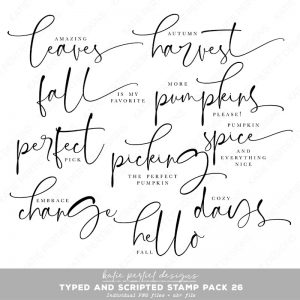 AMAZING
leaves
AUTUMN
harvest
fall
IS MY
FAVORITE
MORE
pumpkins
PLEASE!
perfect
PICK
picking
THE PERFECT
PUMPKIN
PUMPKIN
spice
AND
EVERYTHING
NICE
EMBRACE
change
hello
FALL
COZY
days
katie pertiet designs
TYPED AND SCRIPTED STAMP PACK 26
Individual PNG files + abr file